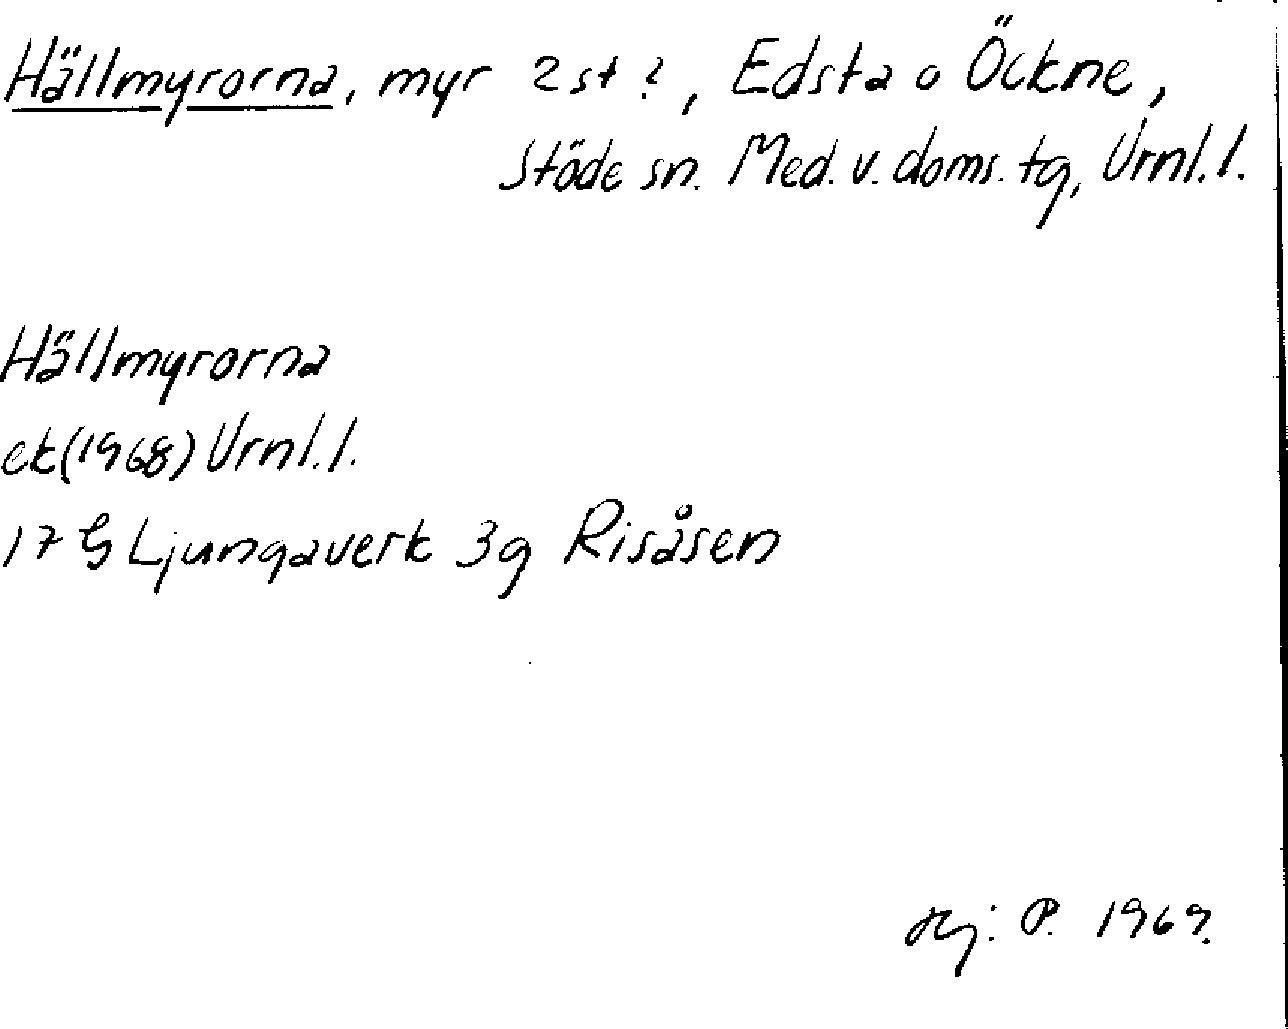 Hällmyrorna, myr 2 st ?, Edsta o Öckne,
Stöde sn. Med. v. doms. tg, Vrnl. l.
Hällmyrorna
ek (1968) Vrnl. l.
17 G Ljungaverk 3g Risåsen
Hj: P. 1969.